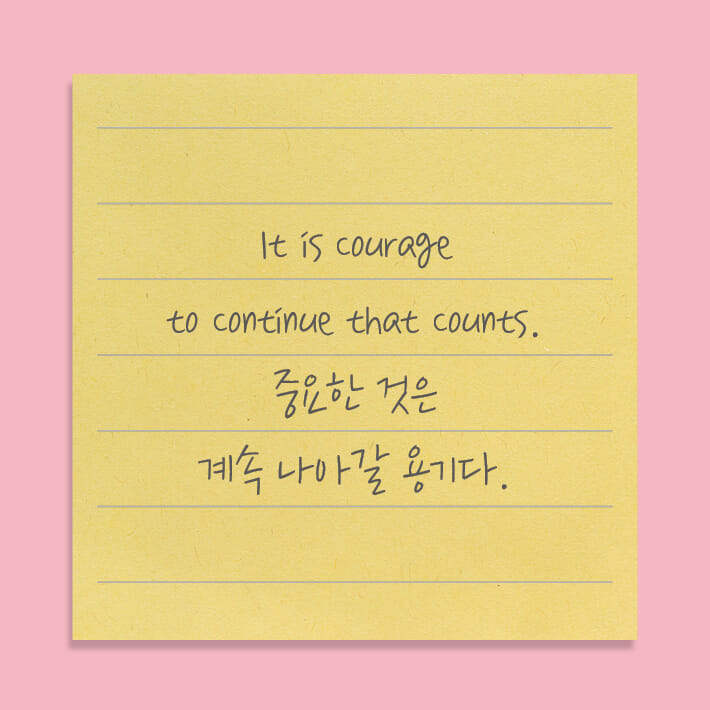 It is courage
to continue that counts.
중요한 것은
계속 나아갈 용기다.